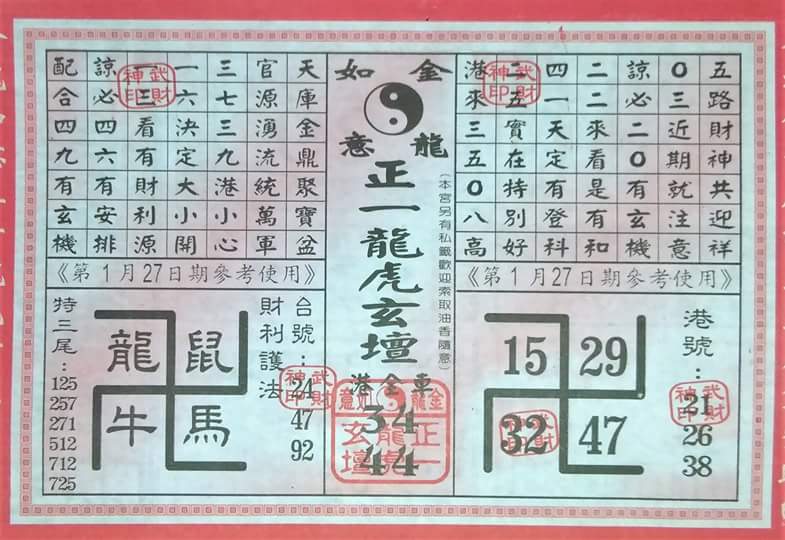 五路財神共迎祥
0三近期就注意
諒必二0有玄機
二二來看是有和
四一天定有登科
二五實在特別好
港來三五0八高
武財神印
《第1月27日期參考使用》
港號：
21
26
38
武財神印
15 29
32 47
武財神印
金龍如意
正一龍虎玄壇
(本宮另有私籤歡迎索取油香隨意)
港全車
34
44
金龍如意
正一龍虎玄壇
天庫金鼎聚寶盆
官源湧流統萬軍
三七三九港小心
一六決定大小開
三看有財利源
諒必四六有安排
配合四九有玄機
武財神印
《第1月27日期參考使用》
台號：
24
47
92
武財神印
財利護法
龍 鼠
牛 馬
特三尾：
125
257
271
512
712
725